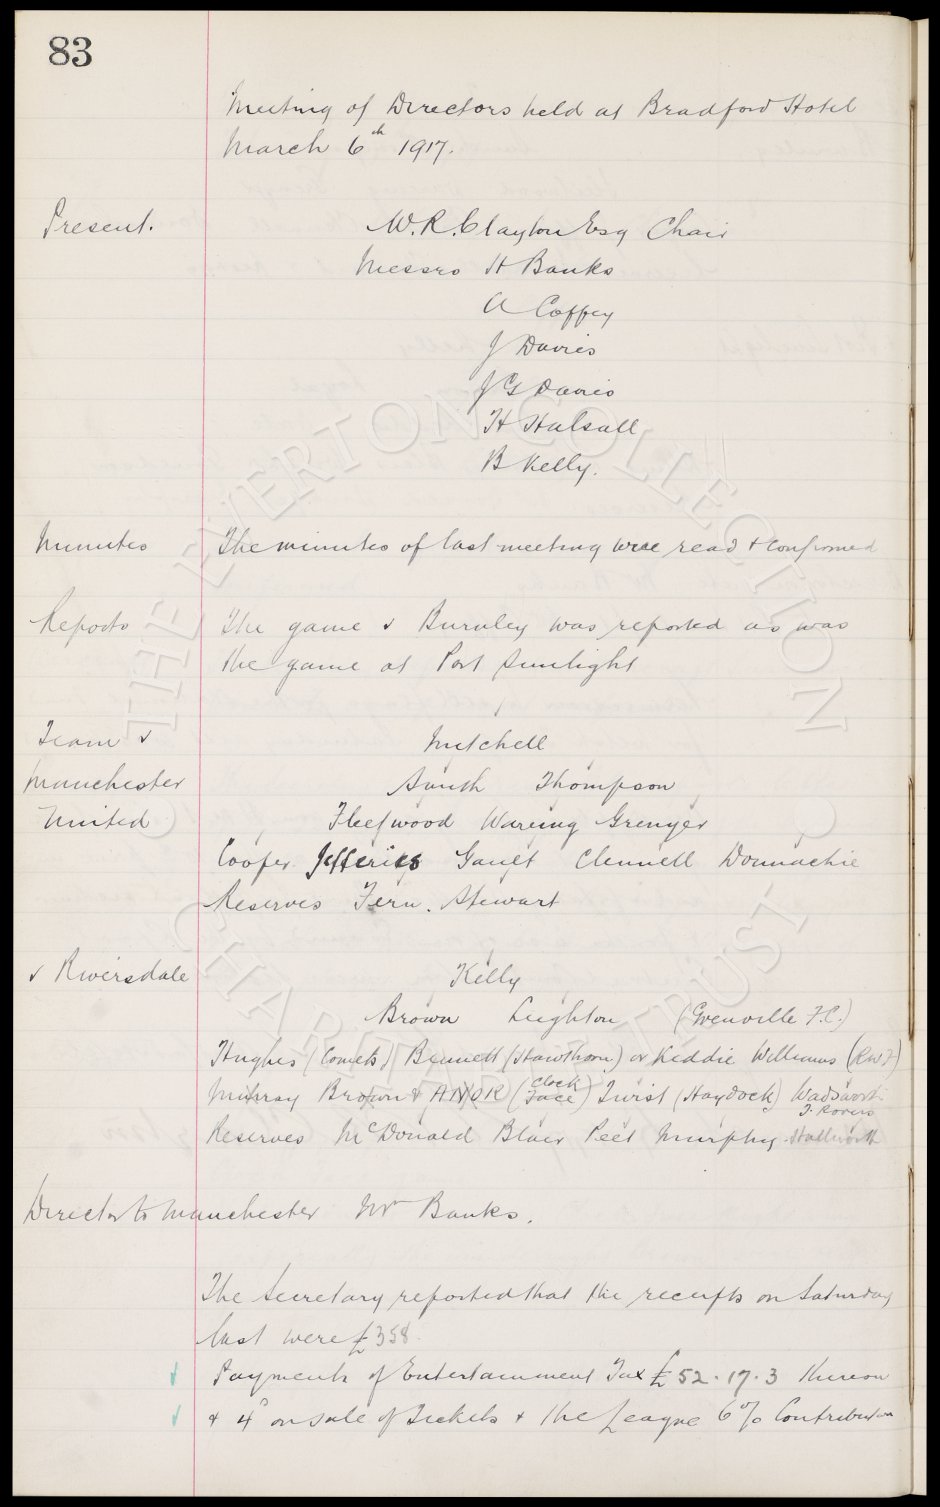 83
Meeting of Directors held at Bradford Hotel
March 6th 1917.
Present. W. R. Clayton Esq Chair
Messrs H Banks
A Coffey
J Davies
J G Davies
H Halsall
B Kelly.
Minutes The minutes of last meeting were read & confirmed
Reports The game v Burnley was reported as was
the game at Port Sunlight
Team v Mitchell
Manchester Smith Thompson
United Fleetwood Wareing Grenyer
Cooper Jefferies Gault Clennell Donnachie
Reserves Fern. Stewart
v Riversdale Kelly
Brown Leighton (Grenville F.C.)
Hughes (Comets) Bennett (Hawthorn) or Kiddie Williams (RWF)
Murray Brown & A N OR (Clock Face) Twist (Haydock) Wadsworth
T. Rovers
Reserves McDonald Blair Peet Murphy Hallworth
Director to Manchester Mr Banks.
The Secretary reported that the receipts on Saturday
last were £358
Payments of Entertainment Tax £52.17.3 thereon
& 4d on sale of Tickets & the League 6% Contribution
THE EVERTON COLLECTION CHARITABLE TRUST